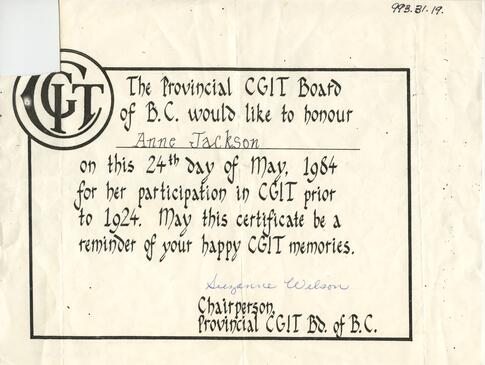 993.31.19.
CGIT
The Provincial CGIT Board
of B.C. would like to honour
Anne Jackson
on this 24th day of May, 1984
for her participation in CGIT prior
to 1924. May this certificate be a
reminder of your happy CGIT memories.
Suzanne Wilson
Chairperson,
Provincial CGIT Bd. of B.C.